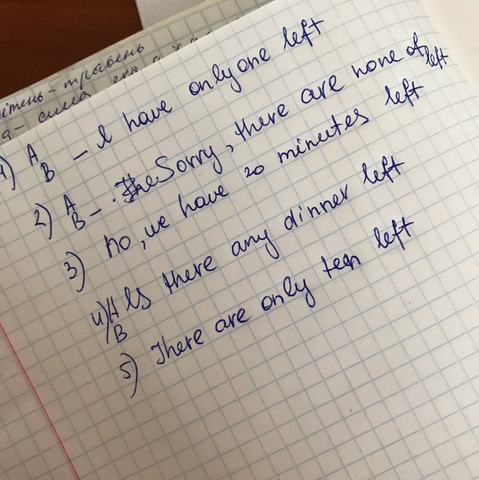 ітень - травень
1) A
B - I have only one left
2) A
B - Sorry, there are none of left
3) no, we have 20 minutes left
4) A Is there any dinner left
B
5) There are only ten left